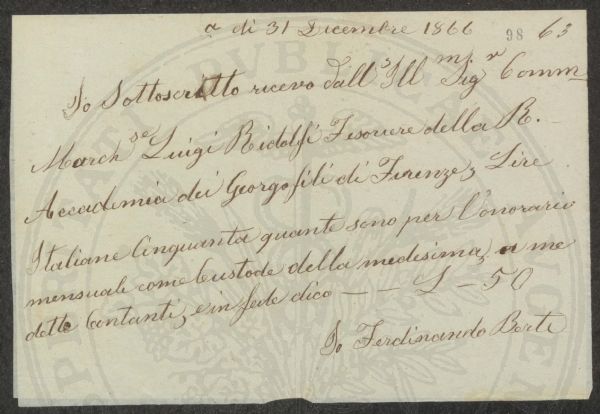 a dì 31 Dicembre 1866 98 63
Io Sottoscritto ricevo dall'Ill.mo Sig.r Comm
March.se Luigi Ridolfi Tesoriere della R.
Accademia dei Georgofili di Firenze, Lire
Italiane Cinquanta quante sono per l'onorario
mensuale come Custode della medesima, a me
dette Contanti, e in fede dico — — £ — 50
Io Ferdinando Berti